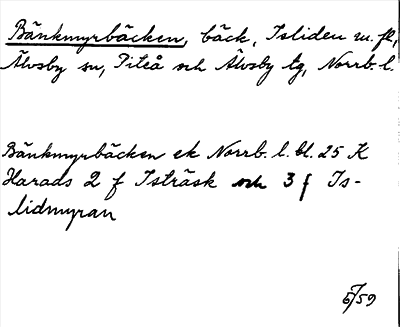 Bänkmyrbäcken, bäck, Isliden m. fl.,
Älvsby sn, Piteå och Älvsby tg, Norrb. l.
Bänkmyrbäcken ek Norrb. l. bl. 25 K
Harads 2 f Isträsk och 3 f Is-
lidmyran
6/59